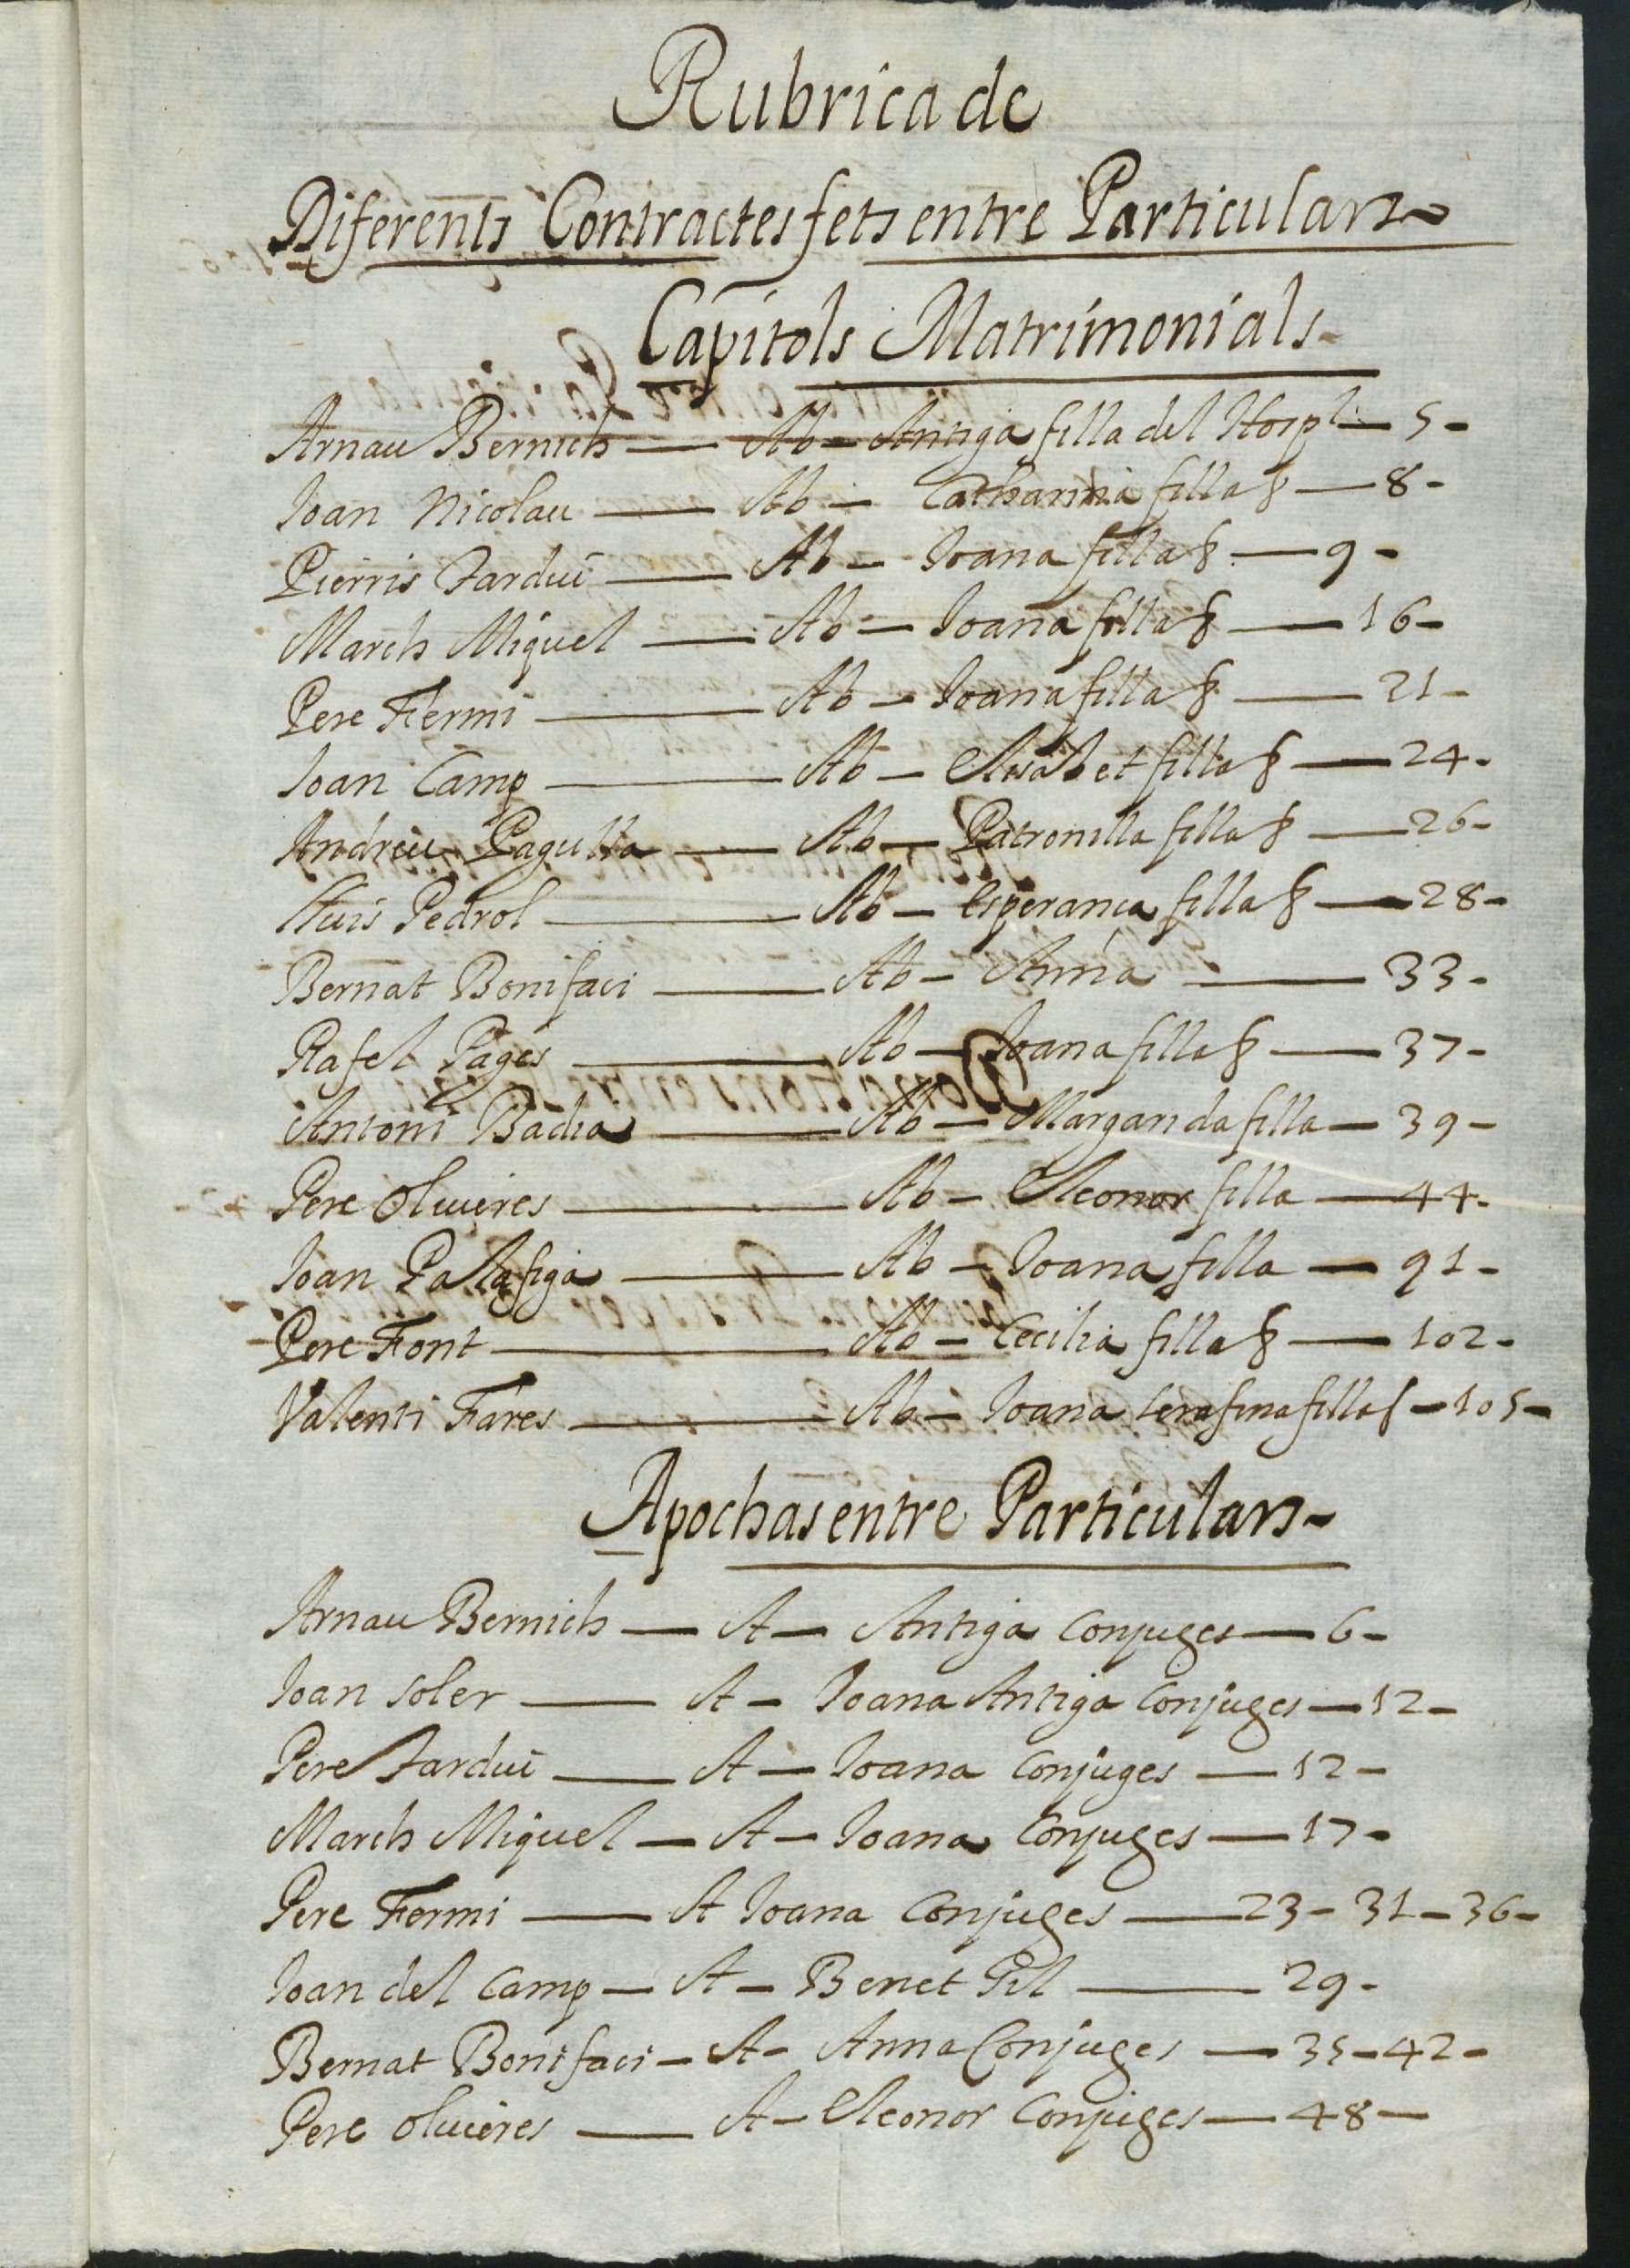 Rubrica de
Diferents Contractes fets entre Particulars
Capitols Matrimonials
Arnau Bernich — Ab — Antiga filla del Hospl. — 5 -
Joan Nicolau — Ab — Catharina filla — 8 -
Pierris Jardui — Ab — Joana filla — 9 -
March Miquel — Ab — Joana filla — 16 -
Pere Fermi — Ab — Joana filla — 21 -
Joan Camp — Ab — Elisabet filla — 24 -
Andreu — Ab — Patronilla filla — 26 -
Lluis Pedrol — Ab — Esperança filla — 28 -
Bernat Bonifaci — Ab — Anna — 33 -
Rafel Pages — Ab — Joana filla — 37 -
Antoni Badia — Ab — Margarida filla — 39 -
Pere Oliveres — Ab — Eleonor filla — 44 -
Joan — Ab — Joana filla — 91 -
Pere Font — Ab — Cecilia filla — 102 -
Valenti Fares — Ab — Joana Serafina filla — 105 -
Apochas entre Particulars
Arnau Bernich — A — Antiga Conjuges — 6 -
Joan Soler — A — Joana Antiga Conjuges — 12 -
Pere Jardui — A — Joana Conjuges — 12 -
March Miquel — A — Joana Conjuges — 17 -
Pere Fermi — A Joana Conjuges — 23 - 31 - 36 -
Joan del Camp — A — Benet Gil — 29 -
Bernat Bonifaci — A - Anna Conjuges — 35 - 42 -
Pere Oliveres — A — Eleonor Conjuges — 48 -